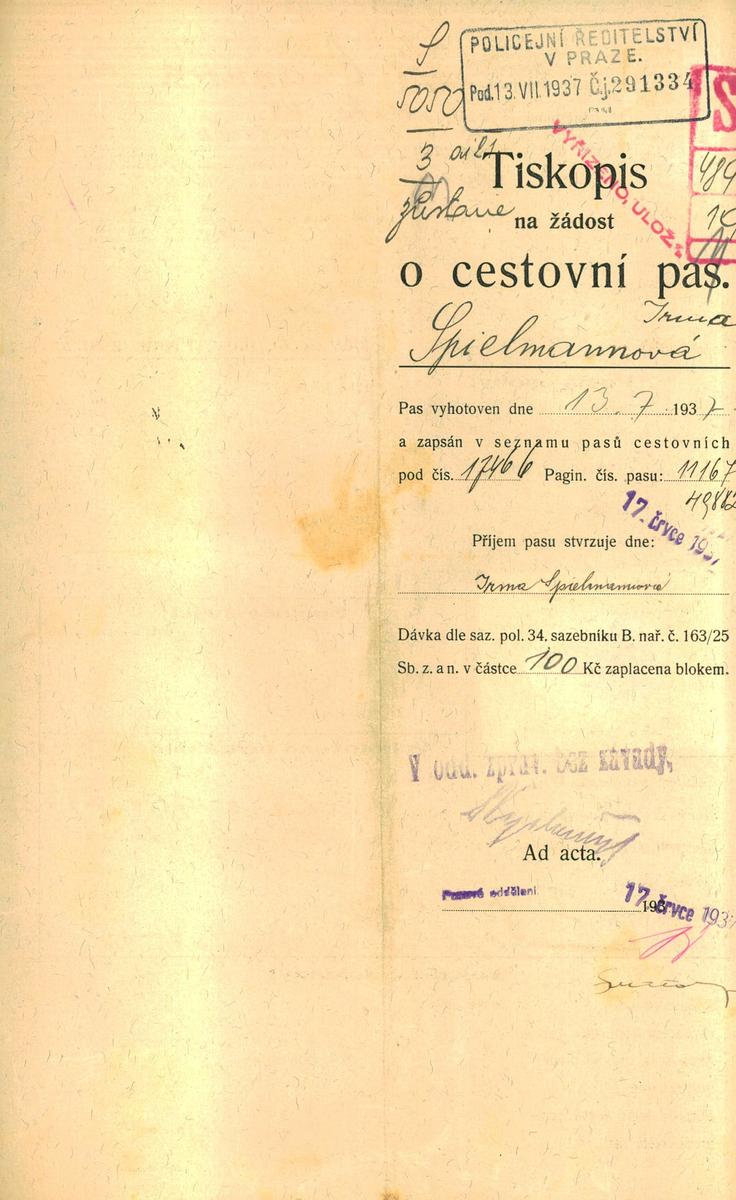 POLICEJNÍ ŘEDITELSTVÍ
V PRAZE.
Pod. 13. VII. 1937 Č.j. 291334
S
5050
3
zůstane
VYŘÍZENO, ULOŽ
S
489
19
Tiskopis
na žádost
o cestovní pas.
Irma
Spielmannová
Pas vyhotoven dne 13. 7. 1937
a zapsán v seznamu pasů cestovních
pod čís. 17466 Pagin. čís. pasu: 11167
17. črvce 1937
Příjem pasu stvrzuje dne:
Irma Spielmannová
Dávka dle saz. pol. 34. sazebníku B. nař. č. 163/25
Sb. z. a n. v částce 100 Kč zaplacena blokem.
V odd. zpráv. bez závady,
Ad acta.
Pasové oddělení
17. črvce 1937
193